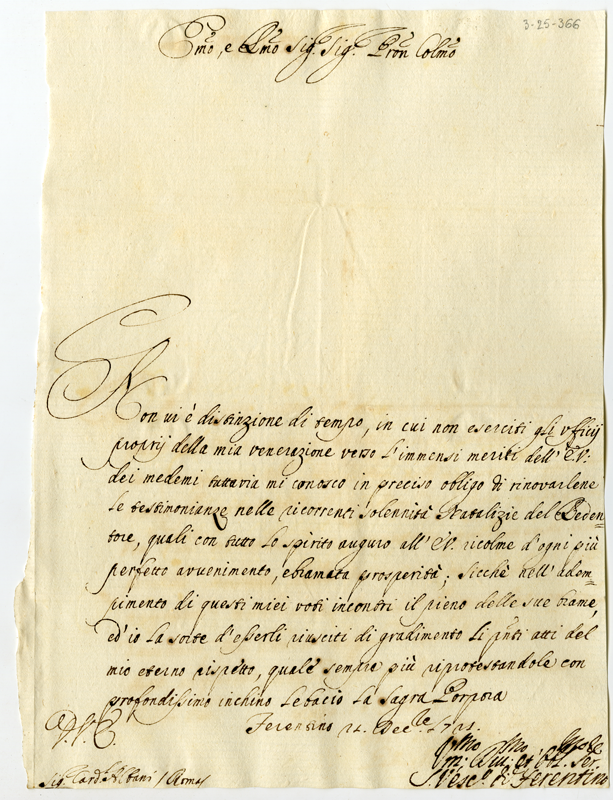 3-25-366
Emo, e Rmo Sig.r Sig.r Pron Colmo
Non ui è distinzione di tempo, in cui non eserciti gli vfficij
proprij della mia venerazione verso l'immensi meriti dell' E.V.
dei medemi tuttavia mi conosco in preciso obligo di rinovarlene
le testimonianze nelle ricorrenti solennità Natalizie del Reden=
tore, quali con tutto lo spirito auguro all' E.V. ricolme d'ogni più
perfetto avvenimento, e bramata prosperità; sicchè nell' adem=
pimento di questi miei voti incontri il pieno delle sue brame,
ed' io la sorte d'esserli riusciti di gradimento li pnti atti del
mio eterno rispetto, quale sempre più riprotestandole con
profondissimo inchino le bacio la Sagra Porpora
Ferentino Dec.le
D.V.E.
Vm: Diu: et Obl. Ser.
Il Vesc.o di Ferentino
Sig. Card. Albani / Roma